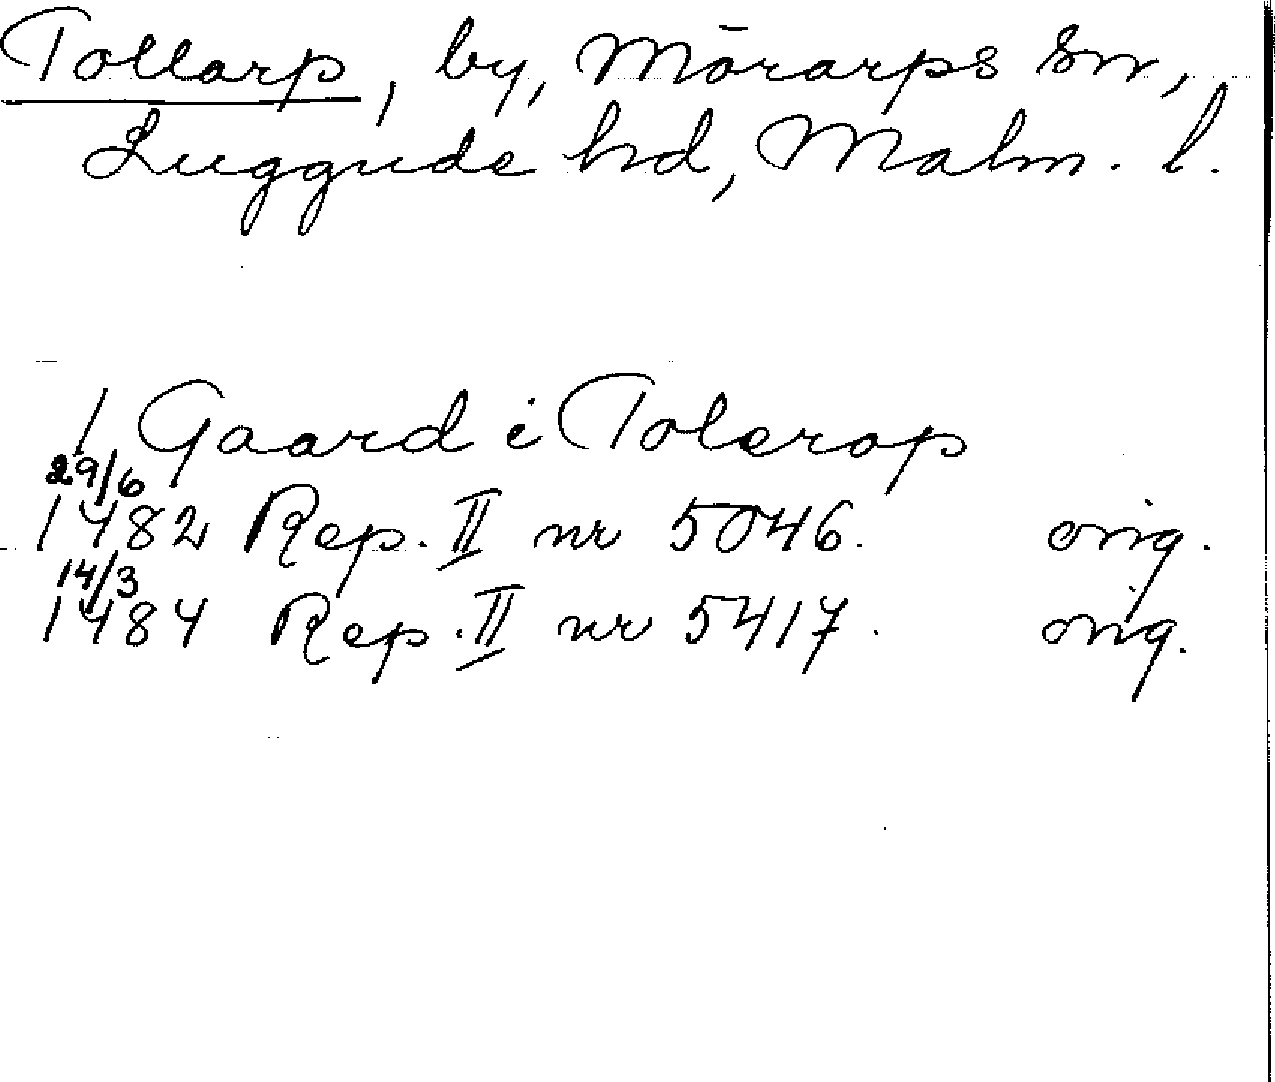 Tollarp, by, Mörarps sn,
Luggude hd, Malm. l.
1 Gaard i Tolerop
29/6
1482 Rep. II nr 5046. orig.
14/3
1484 Rep. II nr 5417. orig.